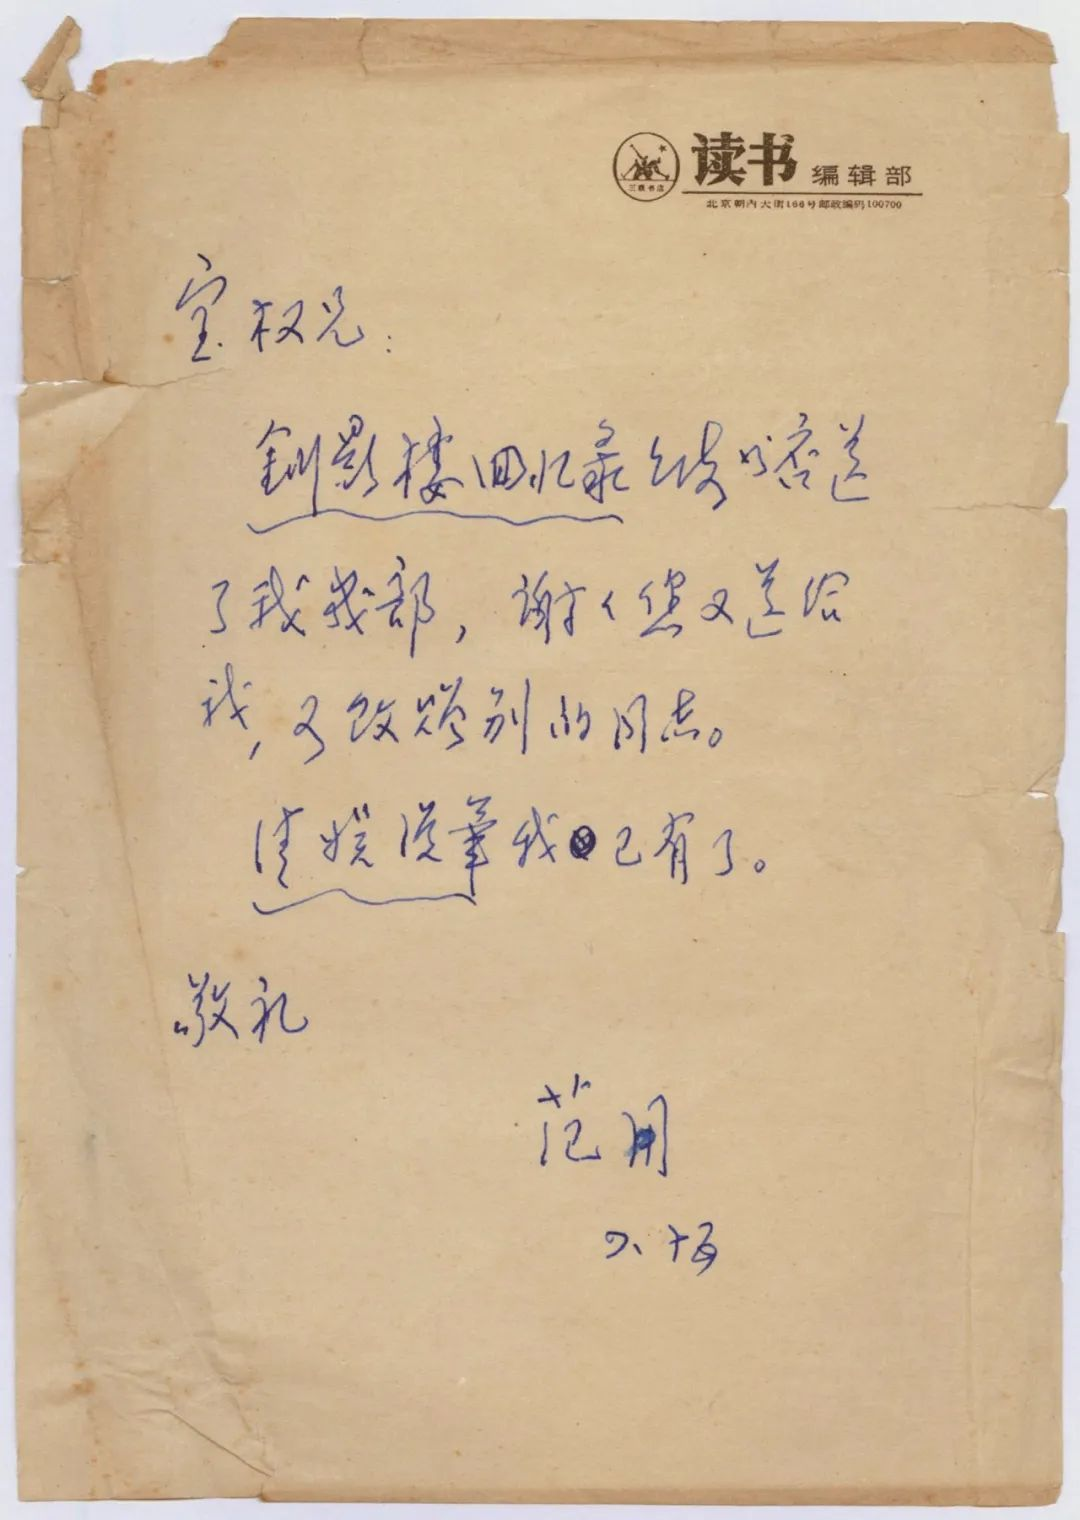 三联书店
读书 编辑部
北京朝内大街166号邮政编码100700
宝权兄：
钏影楼回忆录 送
了我 部，谢谢您又送给
我，可改赠别的同志。
清娱漫笔我已有了。
敬礼
范用
十五